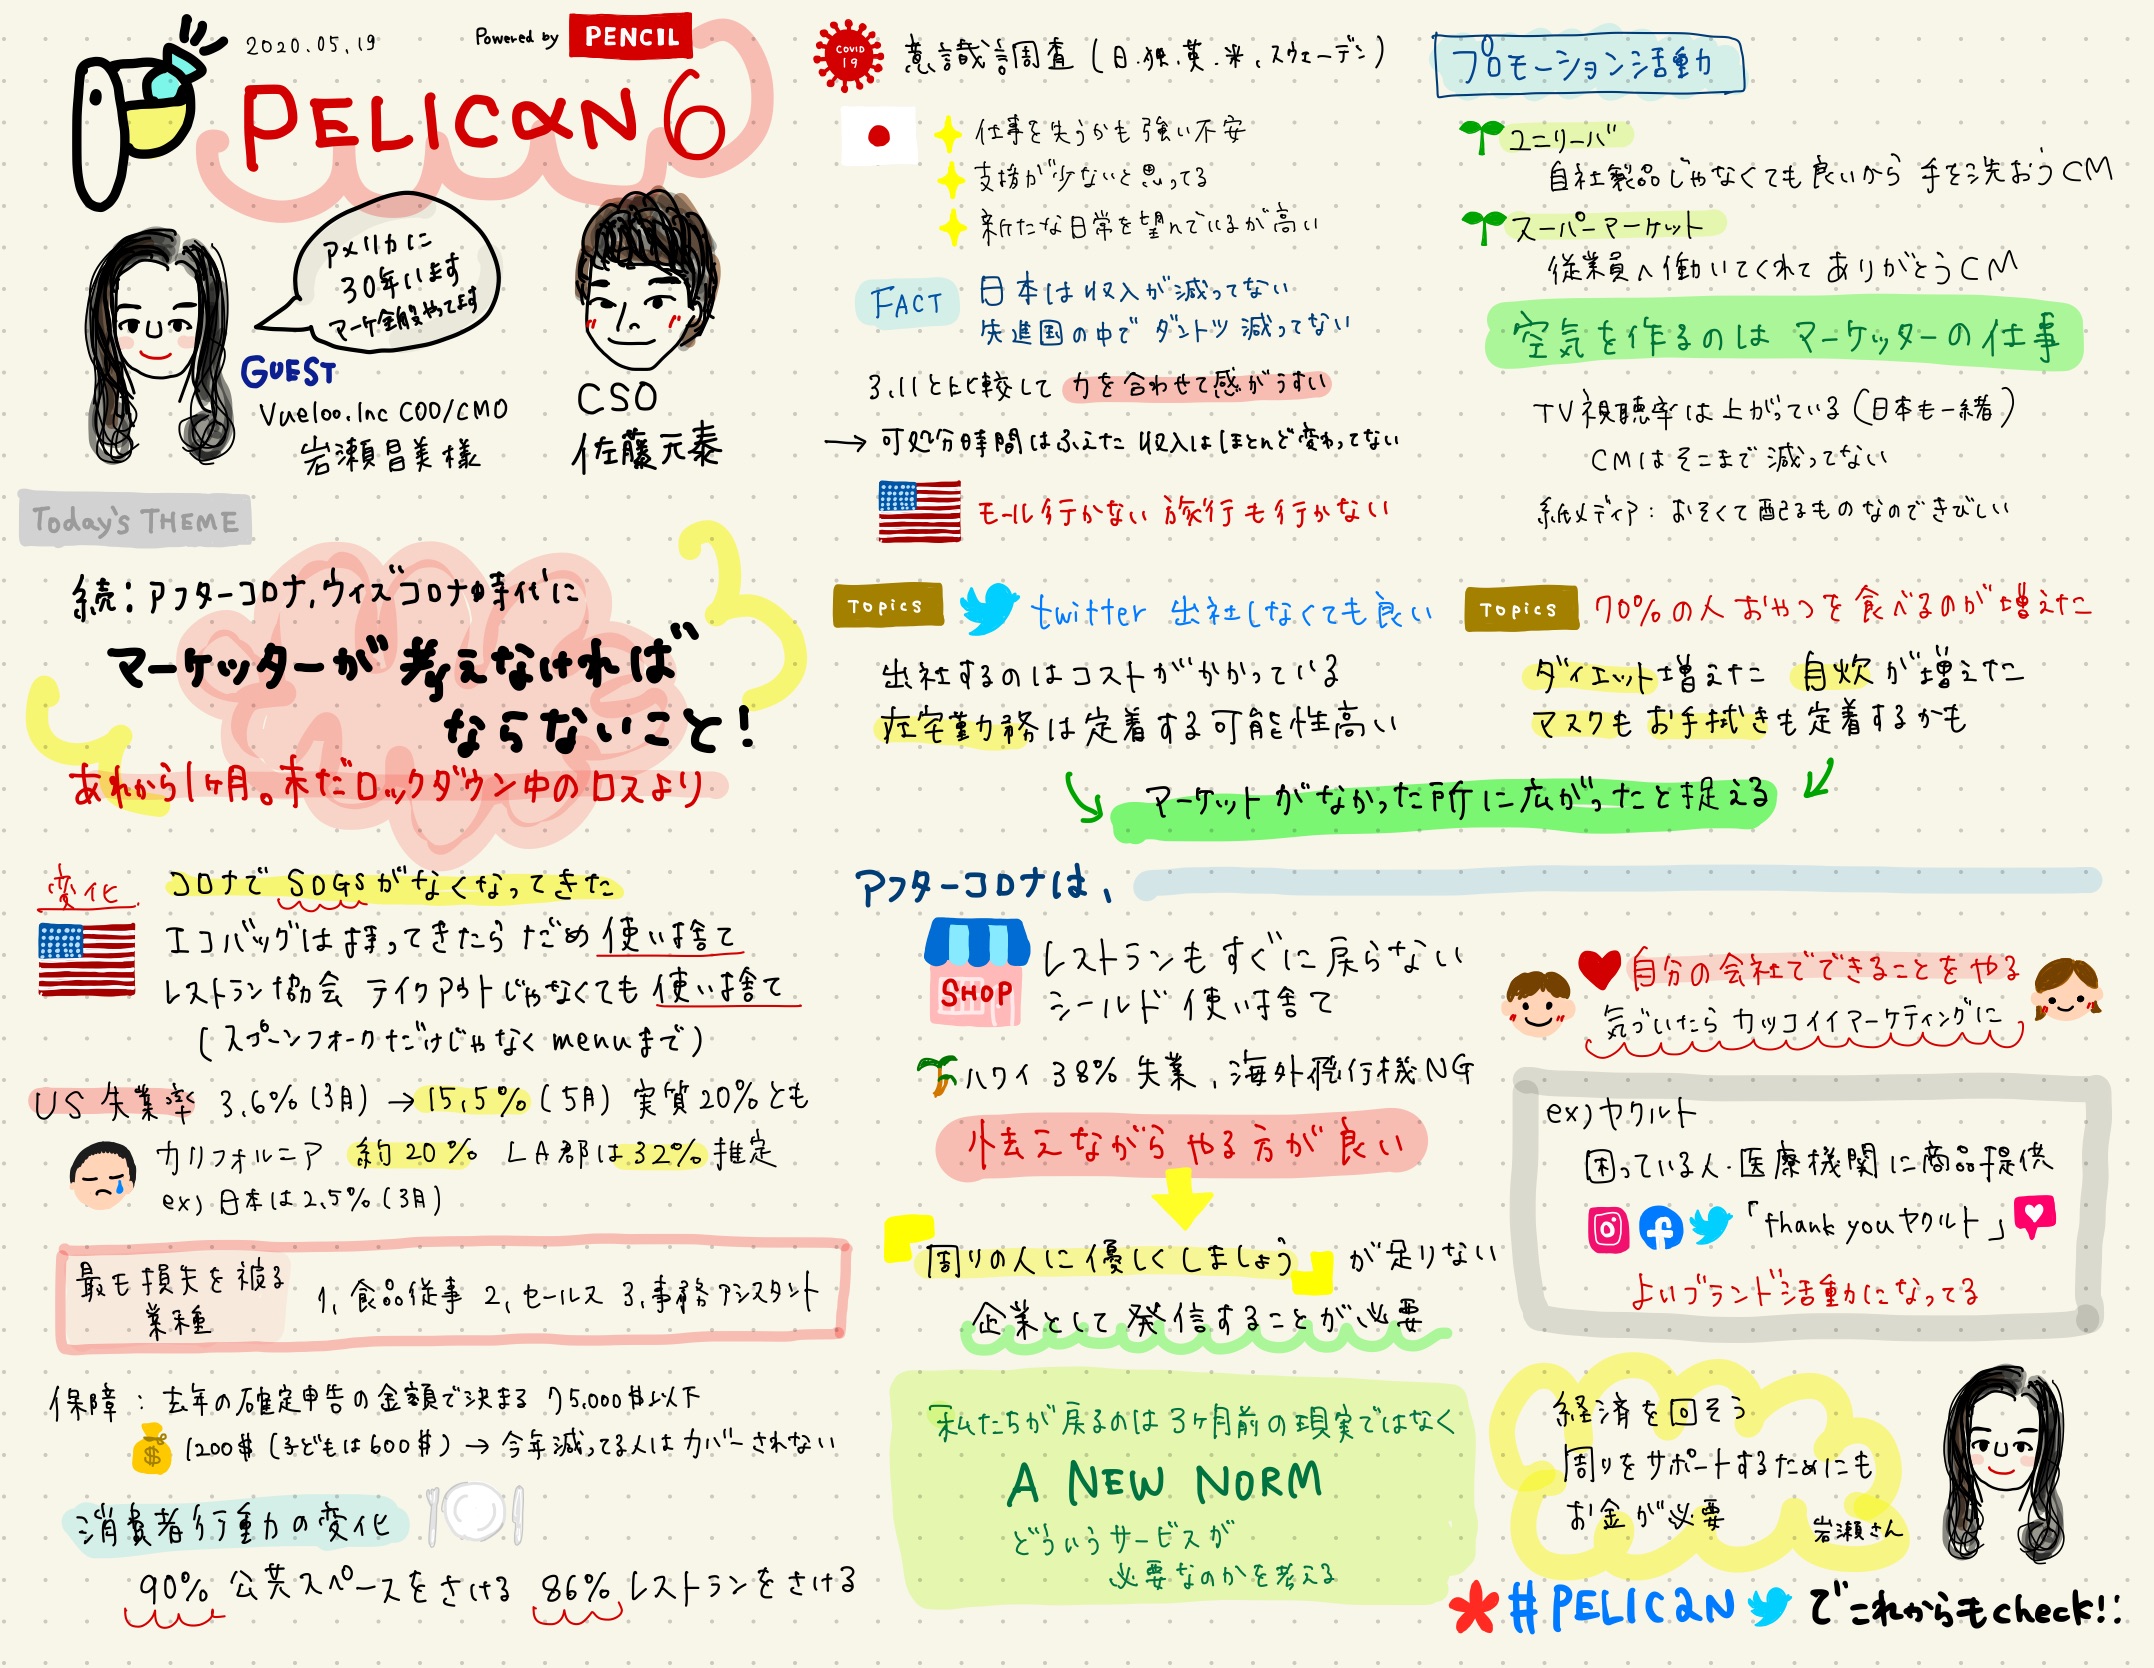 2020.05.19
Powered by PENCIL
PELICAN 6
アメリカに
30年います
マーケ全般やってます
GUEST
Vueloo.Inc COO/CMO
岩瀬昌美様
CSO
佐藤元泰
Today's THEME
続:アフターコロナ,ウィズコロナ時代に
マーケッターが考えなければ
ならないこと!
あれから1ヶ月。未だロックダウン中のロスより
変化
コロナでSDGsがなくなってきた
エコバッグは持ってきたらだめ 使い捨て
レストラン協会 テイクアウトじゃなくても 使い捨て
(スプーンフォークだけじゃなくmenuまで)
US 失業率 3.6%(3月) → 15.5%(5月) 実質20%とも
カリフォルニア 約20% LA郡は32%推定
ex) 日本は2.5%(3月)
最も損失を被る
業種
1, 食品従事 2, セールス 3, 事務アシスタント
保障: 去年の確定申告の金額で決まる 75,000$以下
1200$(子どもは600$) → 今年減ってる人はカバーされない
消費者行動の変化
90% 公共スペースをさける 86% レストランをさける
COVID
19
意識調査(日.独.英.米.スウェーデン)
仕事を失うかも強い不安
支援が少ないと思ってる
新たな日常を望んでいるが高い
FACT
日本は収入が減ってない
先進国の中でダントツ減ってない
3.11と比較して 力を合わせて感がうすい
→ 可処分時間はふえた 収入はほとんど変わってない
モール行かない 旅行も行かない
Topics
twitter 出社しなくても良い
出社するのはコストがかかっている
在宅勤務は定着する可能性高い
プロモーション活動
ユニリーバ
自社製品じゃなくても良いから 手を洗おうCM
スーパーマーケット
従業員へ働いてくれてありがとうCM
空気を作るのは マーケッターの仕事
TV視聴率は上がっている(日本も一緒)
CMはそこまで減ってない
紙メディア: おそくて配るものなのできびしい
Topics
70%の人おやつを食べるのが増えた
ダイエット増えた 自炊が増えた
マスクもお手拭きも定着するかも
マーケットがなかった所に広がったと捉える
アフターコロナは、
SHOP
レストランもすぐに戻らない
シールド使い捨て
ハワイ 38% 失業、海外飛行機NG
怯えながらやる方が良い
「周りの人に優しくしましょう」が足りない
企業として発信することが必要
私たちが戻るのは3ヶ月前の現実ではなく
A NEW NORM
どういうサービスが
必要なのかを考える
自分の会社でできることをやる
気づいたらカッコイイマーケティングに
ex) ヤクルト
困っている人・医療機関に商品提供
「thank you ヤクルト」
よいブランド活動になってる
経済を回そう
周りをサポートするためにも
お金が必要
岩瀬さん
#PELICAN でこれからもcheck!!